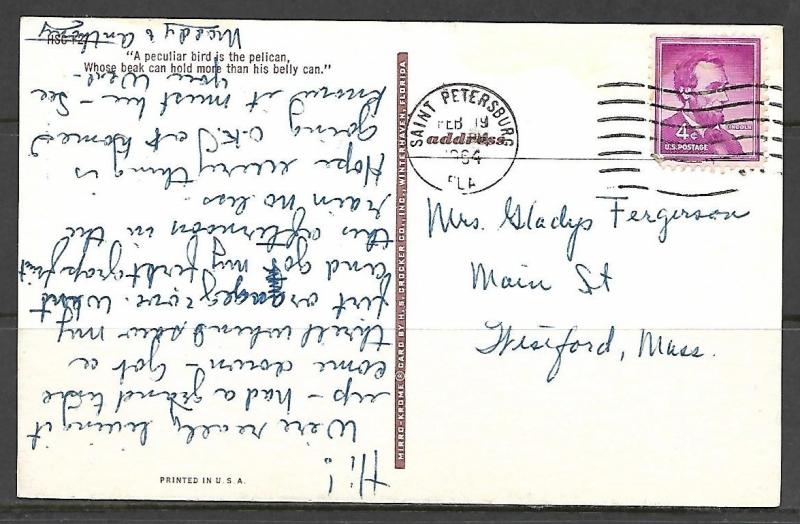 HSC-F27
"A peculiar bird is the pelican,
Whose beak can hold more than his belly can."
Hi!
We're really living it
up - had a grand ride
come down - Got a
thrill when I saw my
first orange grove. Went
and got my first grapefruit
this afternoon in the
rain no less.
Hope everything is
going O.K. at home
know it must be - See
you Wed -
& Anthony
PRINTED IN U.S.A.
MIRRO-KROME ® CARD BY H. S. CROCKER CO., INC., WINTER HAVEN, FLORIDA
SAINT PETERSBURG
FEB 19
PM
1964
FLA
address
4¢
LINCOLN
U.S. POSTAGE
Mrs. Gladys Fergerson
Main St
Westford, Mass.